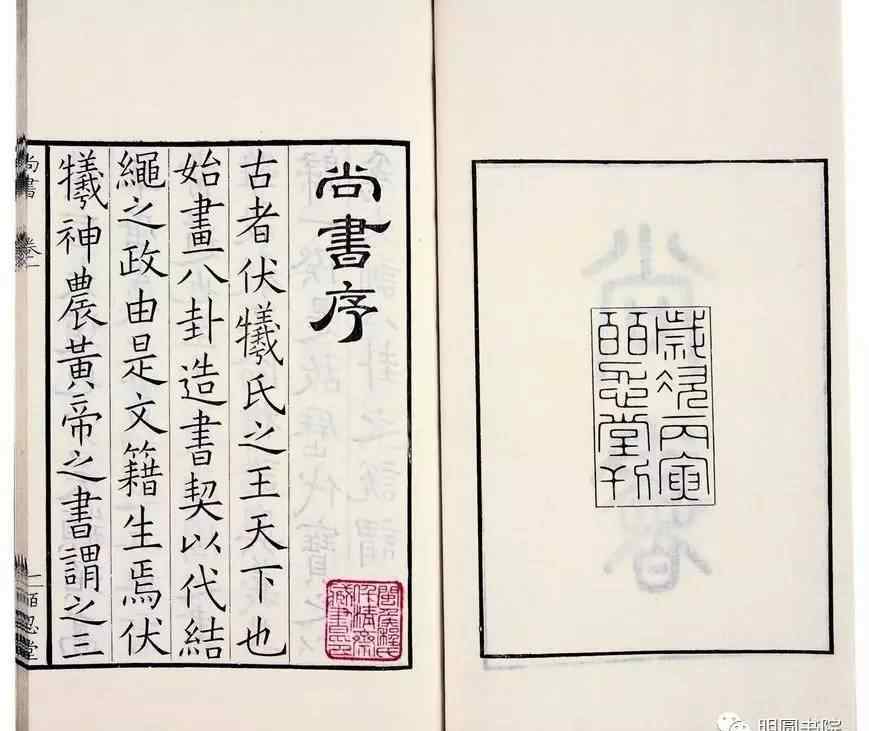 歲次丙寅
皕忍堂刊
尚書序
古者伏犧氏之王天下也
始畫八卦造書契以代結
繩之政由是文籍生焉伏
犧神農黃帝之書謂之三
尚書 卷一
一 皕忍堂
明圓書院